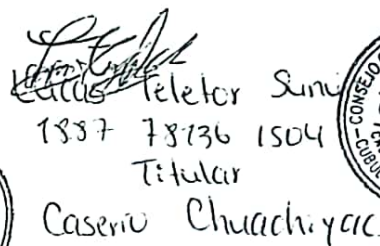 Teletor Sunu
1887 78736 1504
Titular
Caserio Chuachiyac
CONSEJO
CUBUL